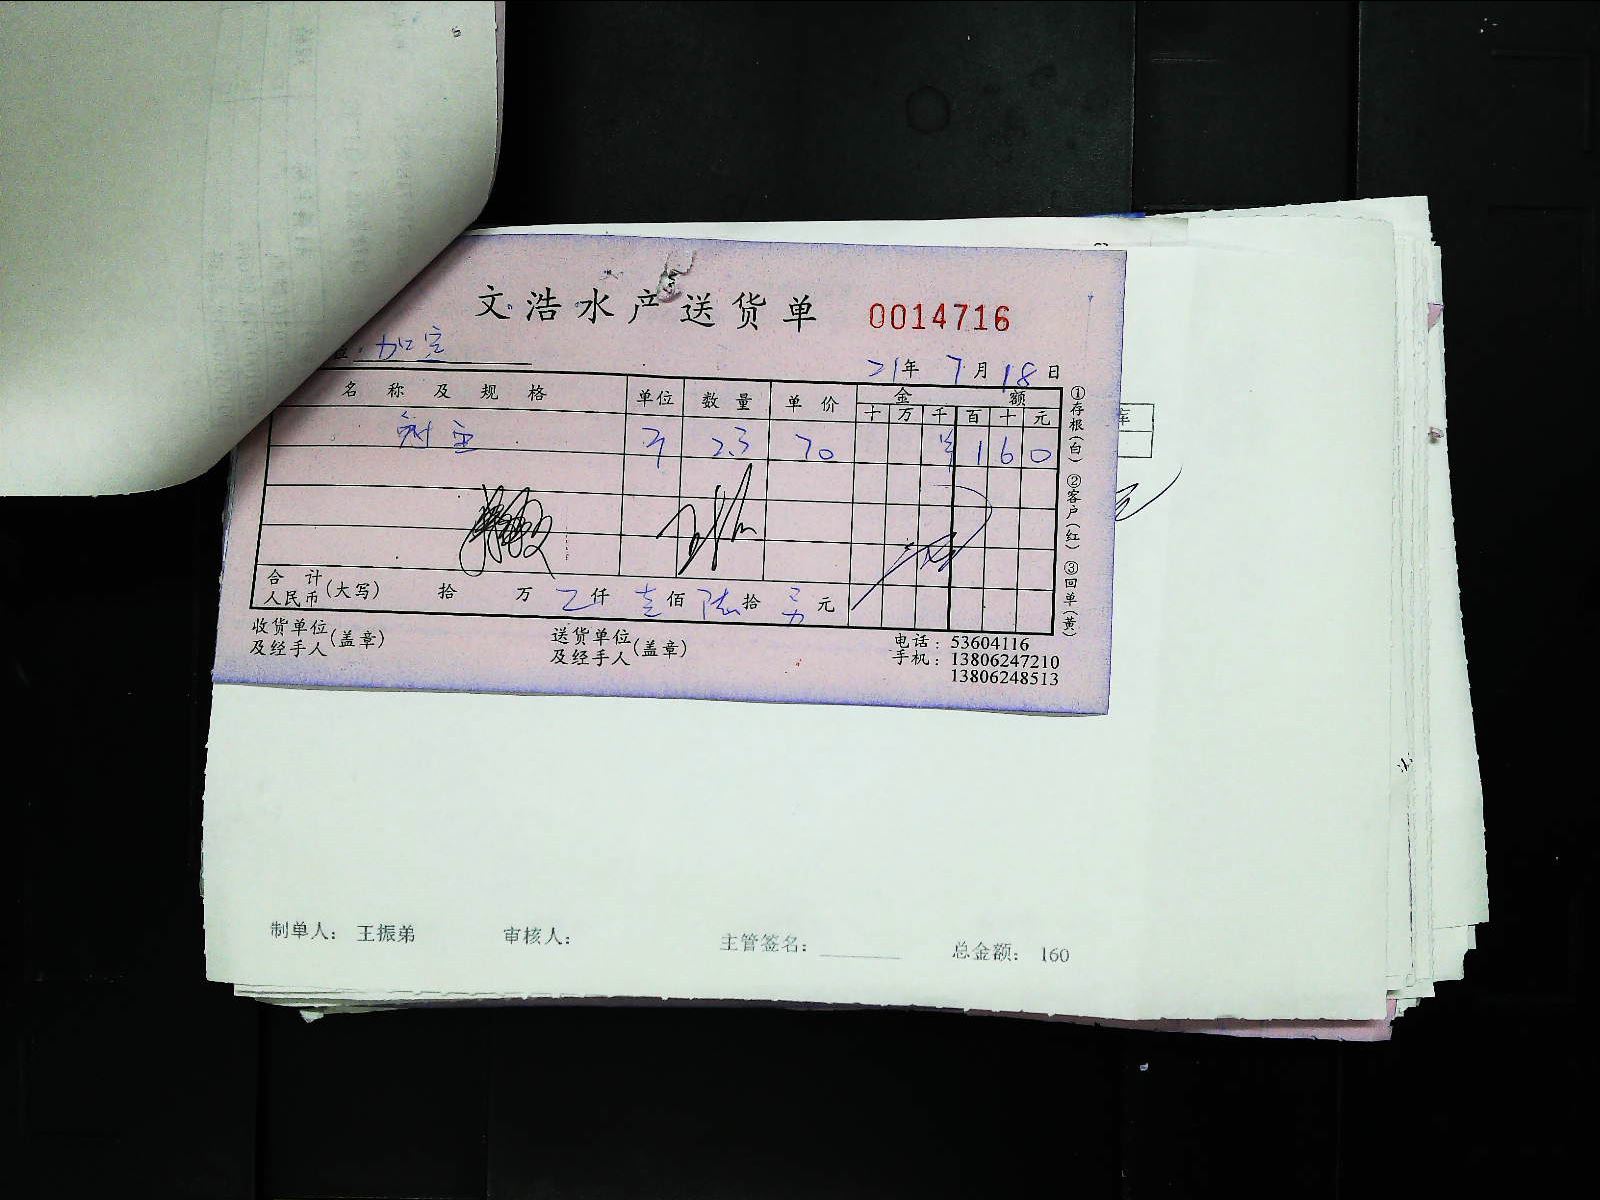 文浩水产送货单 0014716
加宝
21年 7月18日
名称及规格 单位 数量 单价 金额
十 万 千 百 十 元
斤 2.3 70 ¥ 1 6 0
合计人民币(大写) 拾 万 仟 壹佰 陆拾 元
收货单位及经手人(盖章) 送货单位及经手人(盖章)
电话：53604116
手机：13806247210
13806248513
①存根(白) ②客户(红) ③回单(黄)
库
制单人： 王振弟 审核人： 主管签名： 总金额： 160